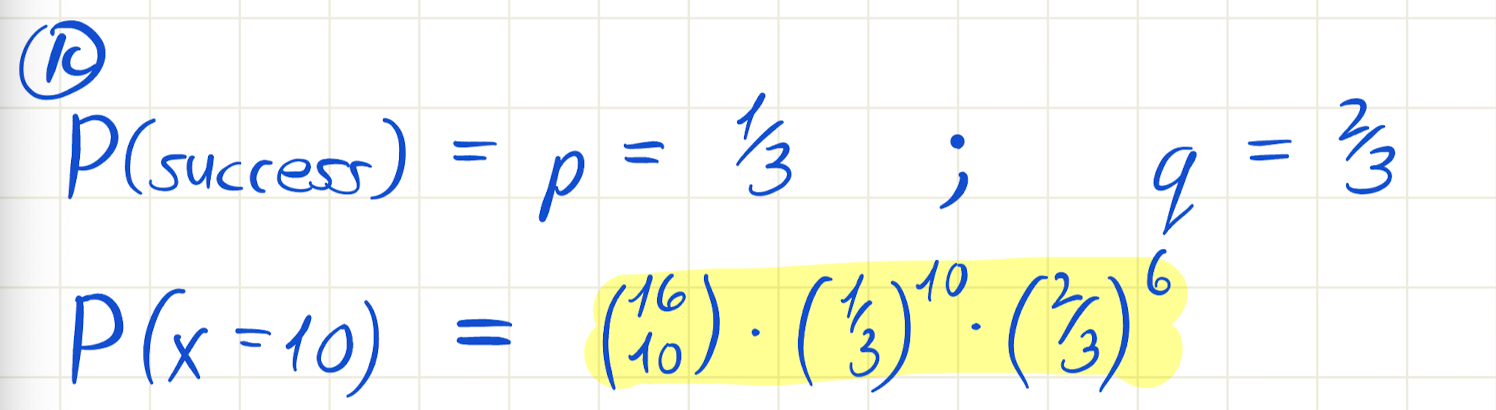 1c
P(success) = p = 1/3 ; q = 2/3
P(x=10) = (16 10) · (1/3)^10 · (2/3)^6